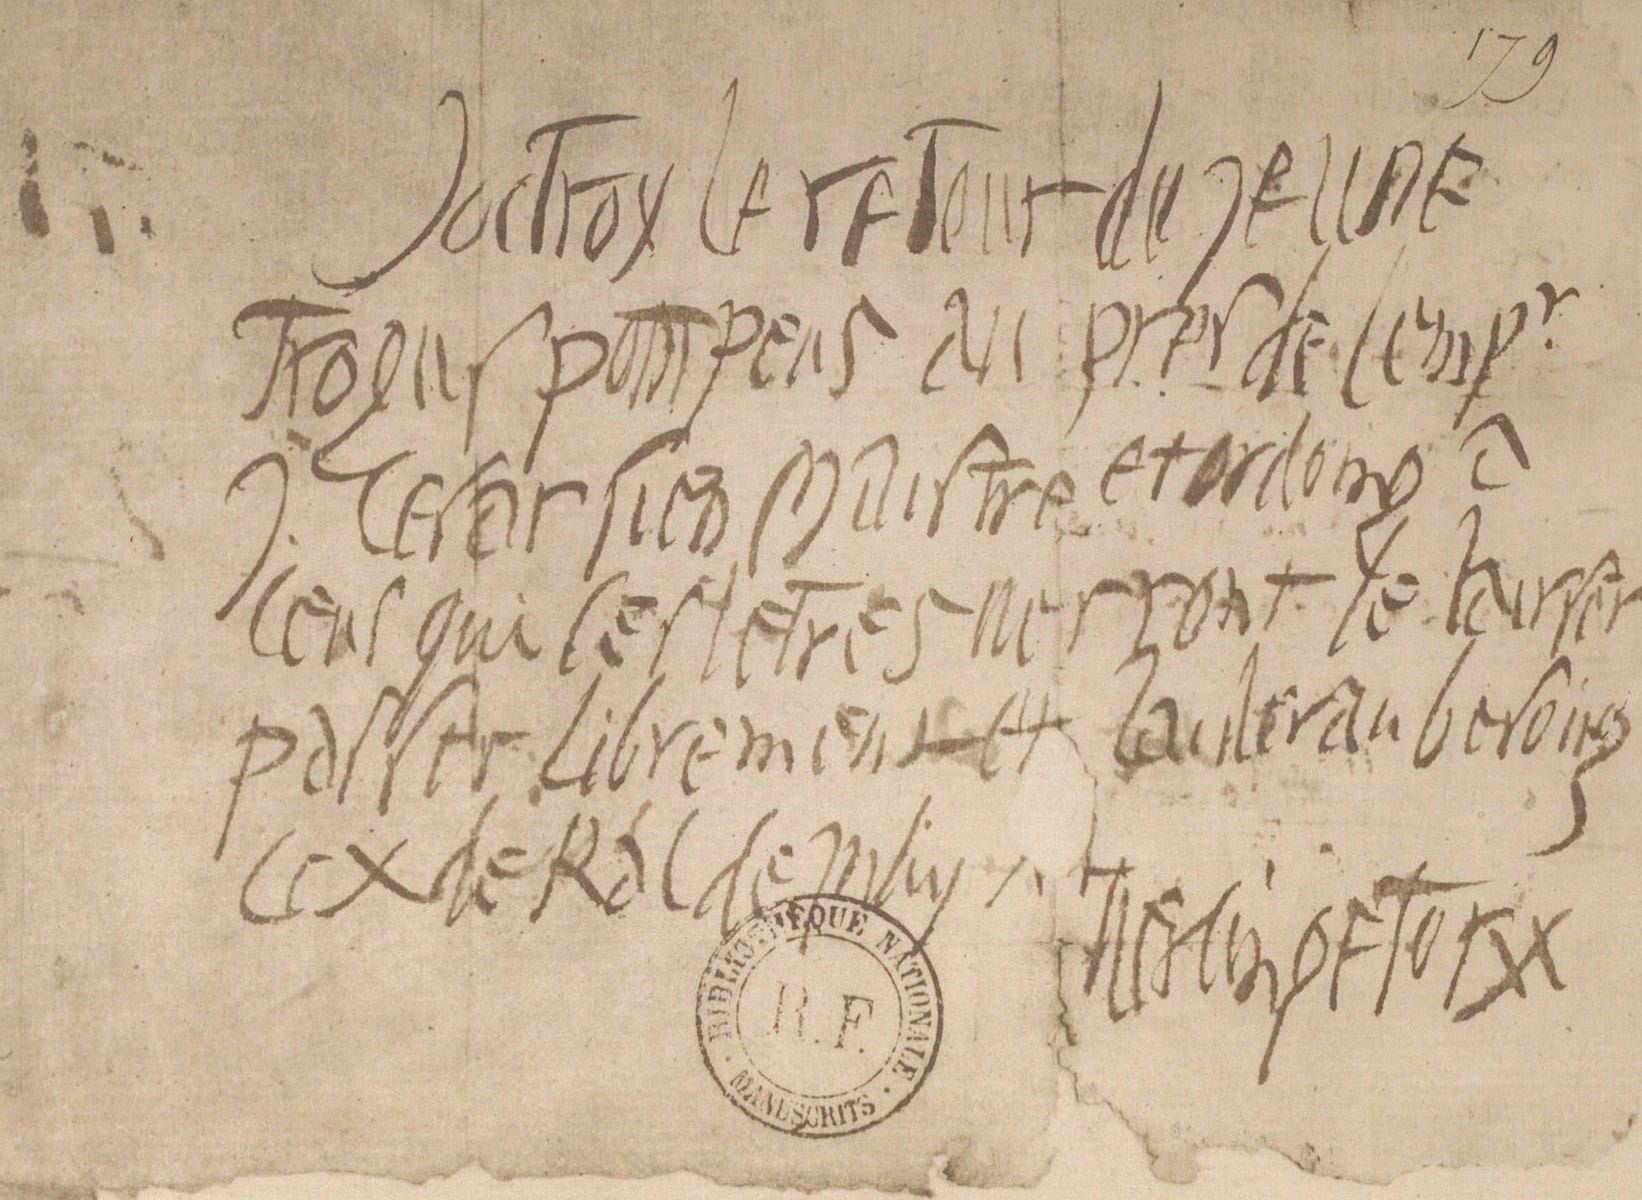 179
Joctroy le retour du jeune
Trogus pompeus au pres de lempr
J. Cesar sien maistre et ordong a
ceus qui ces letres verront le laisser
passer librement et laider au besoing
ce x de Kal de may
Vercingetorix
BIBLIOTHÈQUE NATIONALE
R.F.
MANUSCRITS